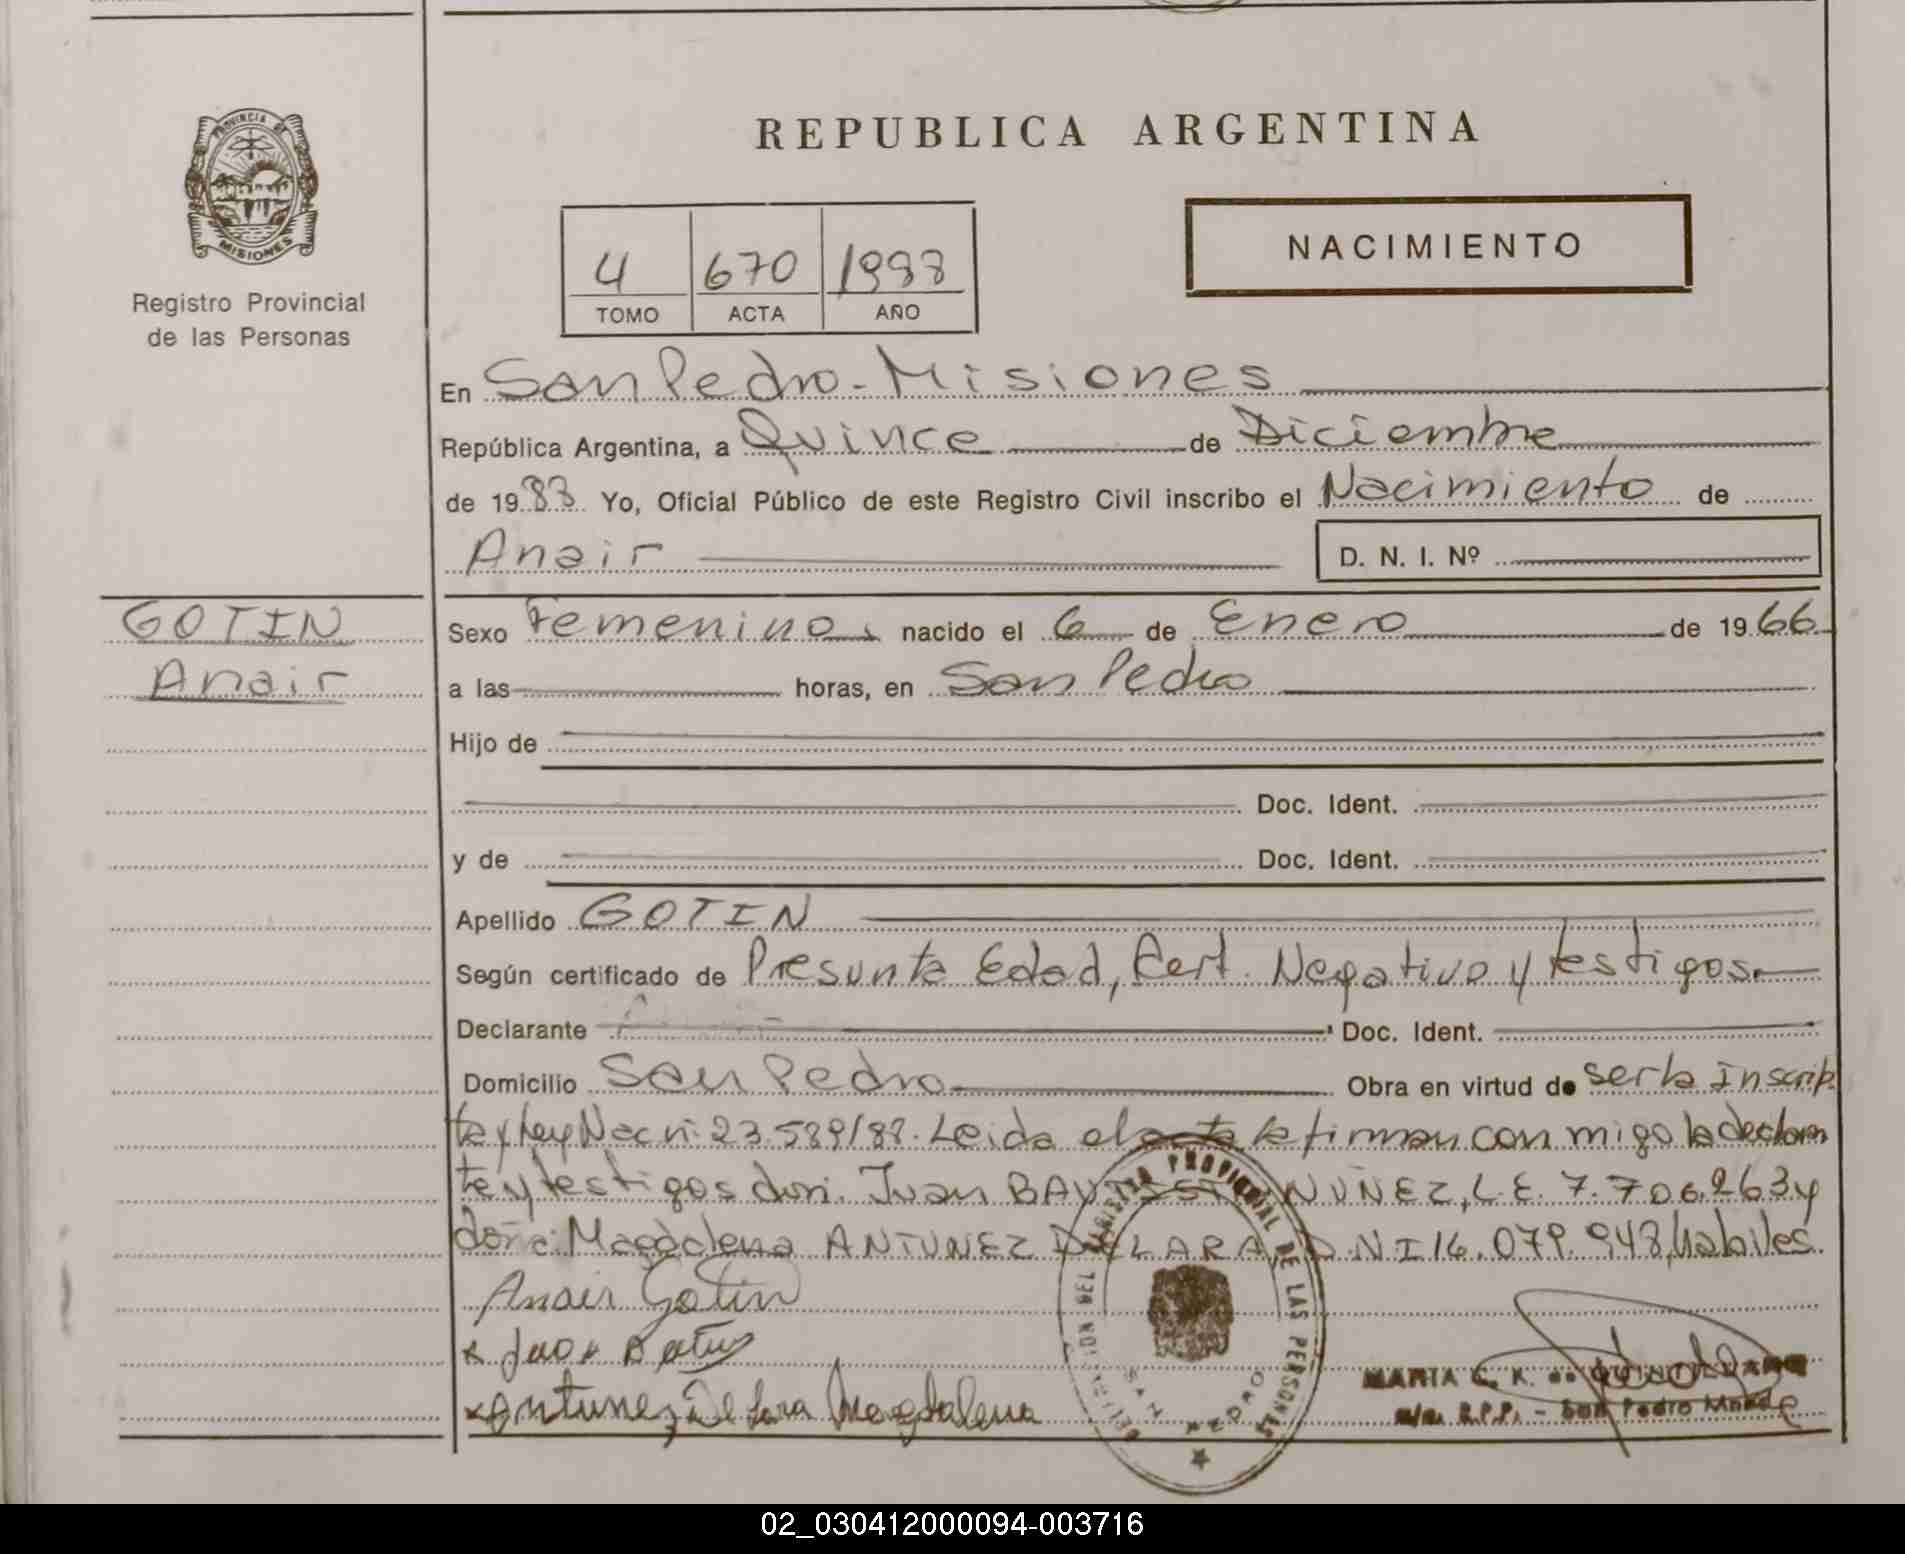 PROVINCIA DE
MISIONES
Registro Provincial
de las Personas
REPUBLICA ARGENTINA
4 670 1988
TOMO ACTA AÑO
NACIMIENTO
En San Pedro - Misiones
República Argentina, a Quince de Diciembre
de 1988 Yo, Oficial Público de este Registro Civil inscribo el Nacimiento de
Anair D. N. I. Nº
GOTIN
Anair
Sexo Femenino. nacido el 6 de Enero de 1966
a las horas, en San Pedro
Hijo de
Doc. Ident.
y de Doc. Ident.
Apellido GOTIN
Según certificado de Presunta Edad, Cert. Negativo y testigos.
Declarante Doc. Ident.
Domicilio San Pedro Obra en virtud de ser la inscrip.
te y Ley Nac. nº 23.589/88. Leida el acta la firman con migo la declaran
te y testigos don: Juan BAUTISTA NUÑEZ, L.E. 7.706.263 y
doña: Magdalena ANTUNEZ DE LARA, D N I 16.079.948, habiles.
Anair Gotin
x Juan Batis
x Antunez De Lara Magdalena
DELEGACION DEL REGISTRO PROVINCIAL DE LAS PERSONAS
SAN PEDRO
MARIA C. K. de
R.P.P. - San Pedro Mnes
02_030412000094-003716